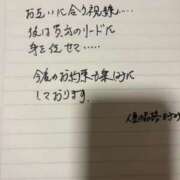 お互いに合う視線……
後は貴方のリードに
身を任せて……
今度のお約束も楽しみに
しております。